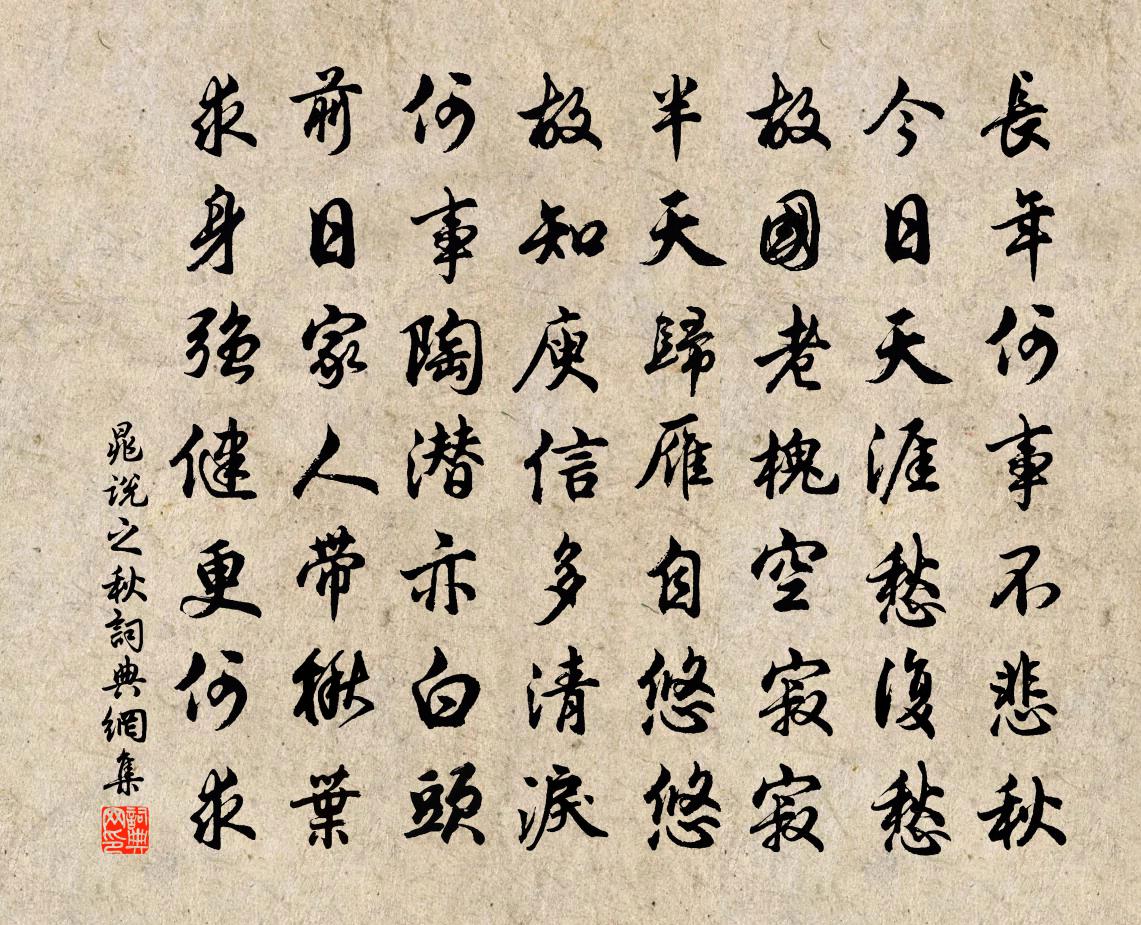 長年何事不悲秋
今日天涯愁復愁
故國老槐空寂寂
半天歸雁自悠悠
故知庾信多清淚
何事陶潛亦白頭
前日家人帶楸葉
求身強健更何求
晁說之秋詞典網集
詞典網印